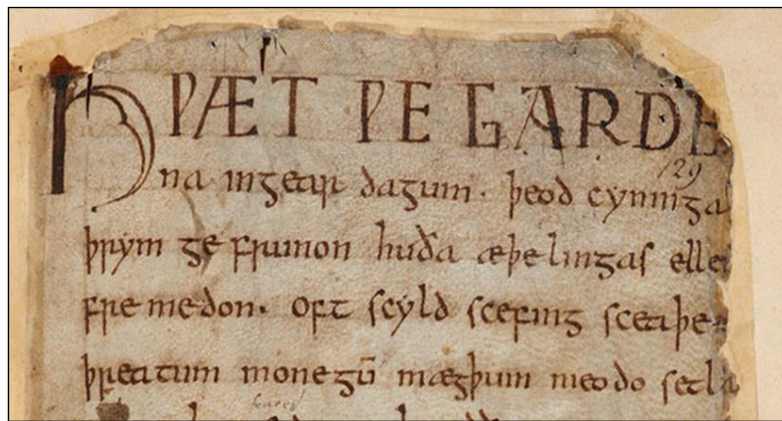 HǷÆT ǷE GARDE
129
na ingear dagum · þeod cyninga
þrym ge frunon huða æþelingas elle
fre medon. oft scyld scefing sceaþe
þreatum monegū mægþum meodo setla